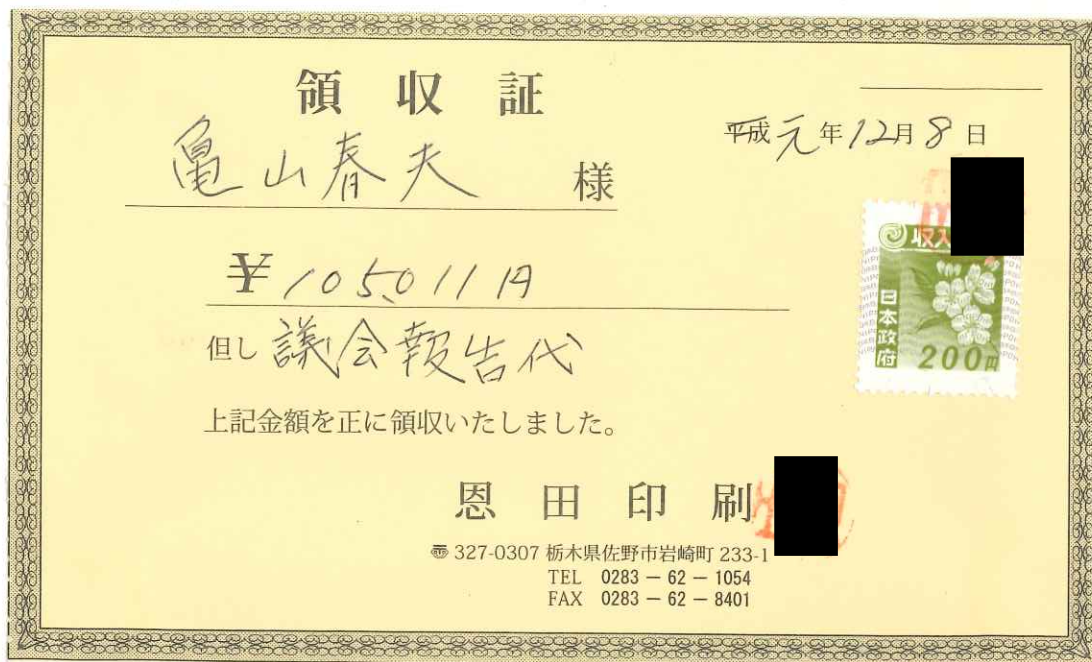 領収証
平成元年12月8日
亀山春夫 様
¥105,011円
但し 議会報告代
上記金額を正に領収いたしました。
収入
日本政府
200円
恩田印刷
〠327-0307 栃木県佐野市岩崎町 233-1
TEL 0283-62-1054
FAX 0283-62-8401